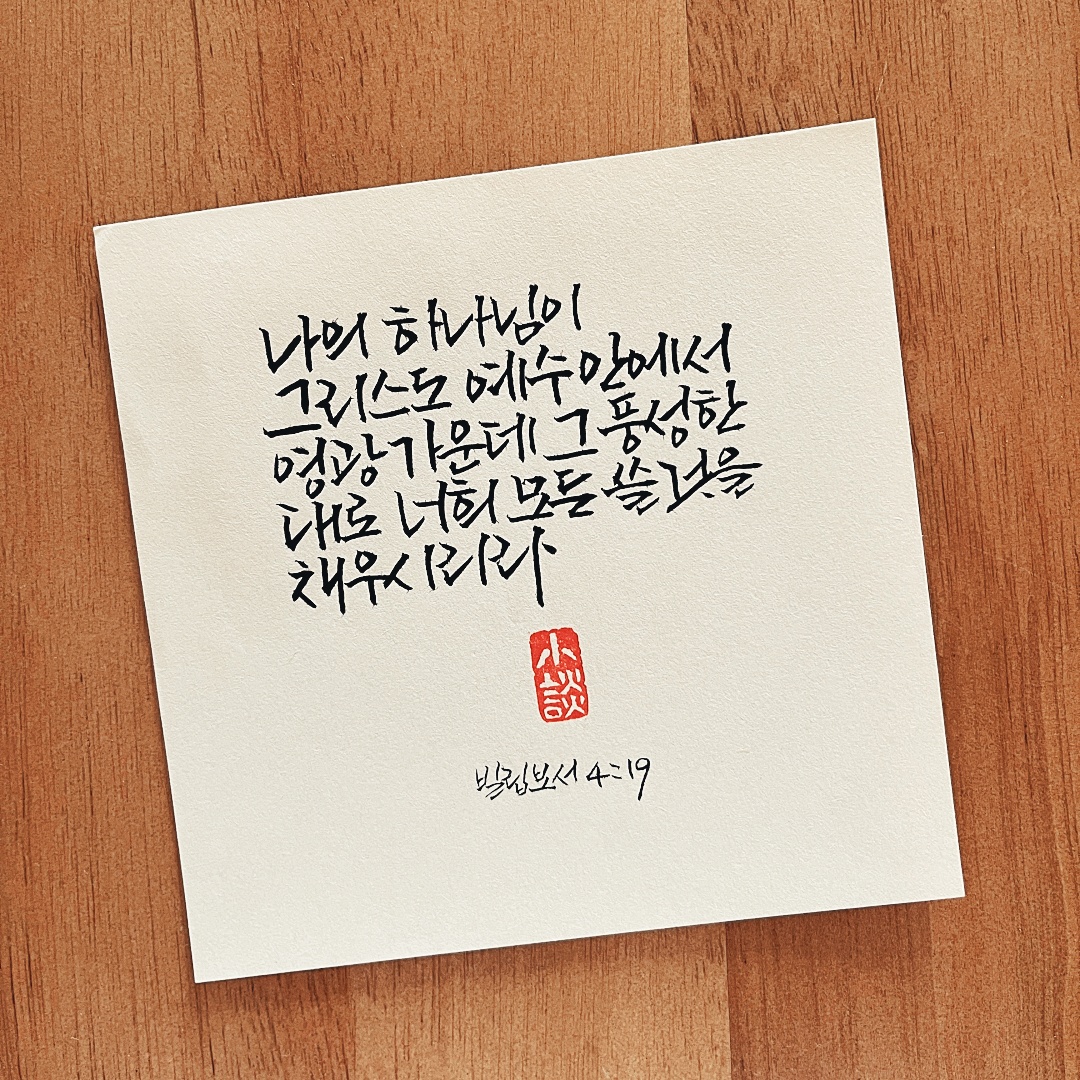 나의 하나님이
그리스도 예수 안에서
영광 가운데 그 풍성한
대로 너희 모든 쓸 것을
채우시리라
小談
빌립보서 4:19